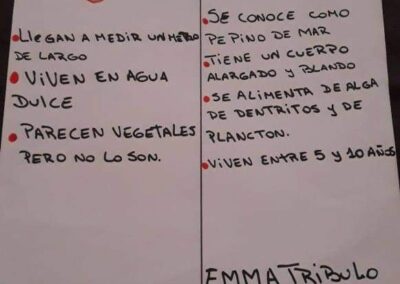 LLEGAN A MEDIR UN METRO
DE LARGO
VIVEN EN AGUA
DULCE
PARECEN VEGETALES
PERO NO LO SON.
SE CONOCE COMO
PEPINO DE MAR
TIENE UN CUERPO
ALARGADO Y BLANDO
SE ALIMENTA DE ALGA
DE DENTRITOS Y DE
PLANCTON.
VIVEN ENTRE 5 Y 10 AÑOS
EMMA TRIBULO